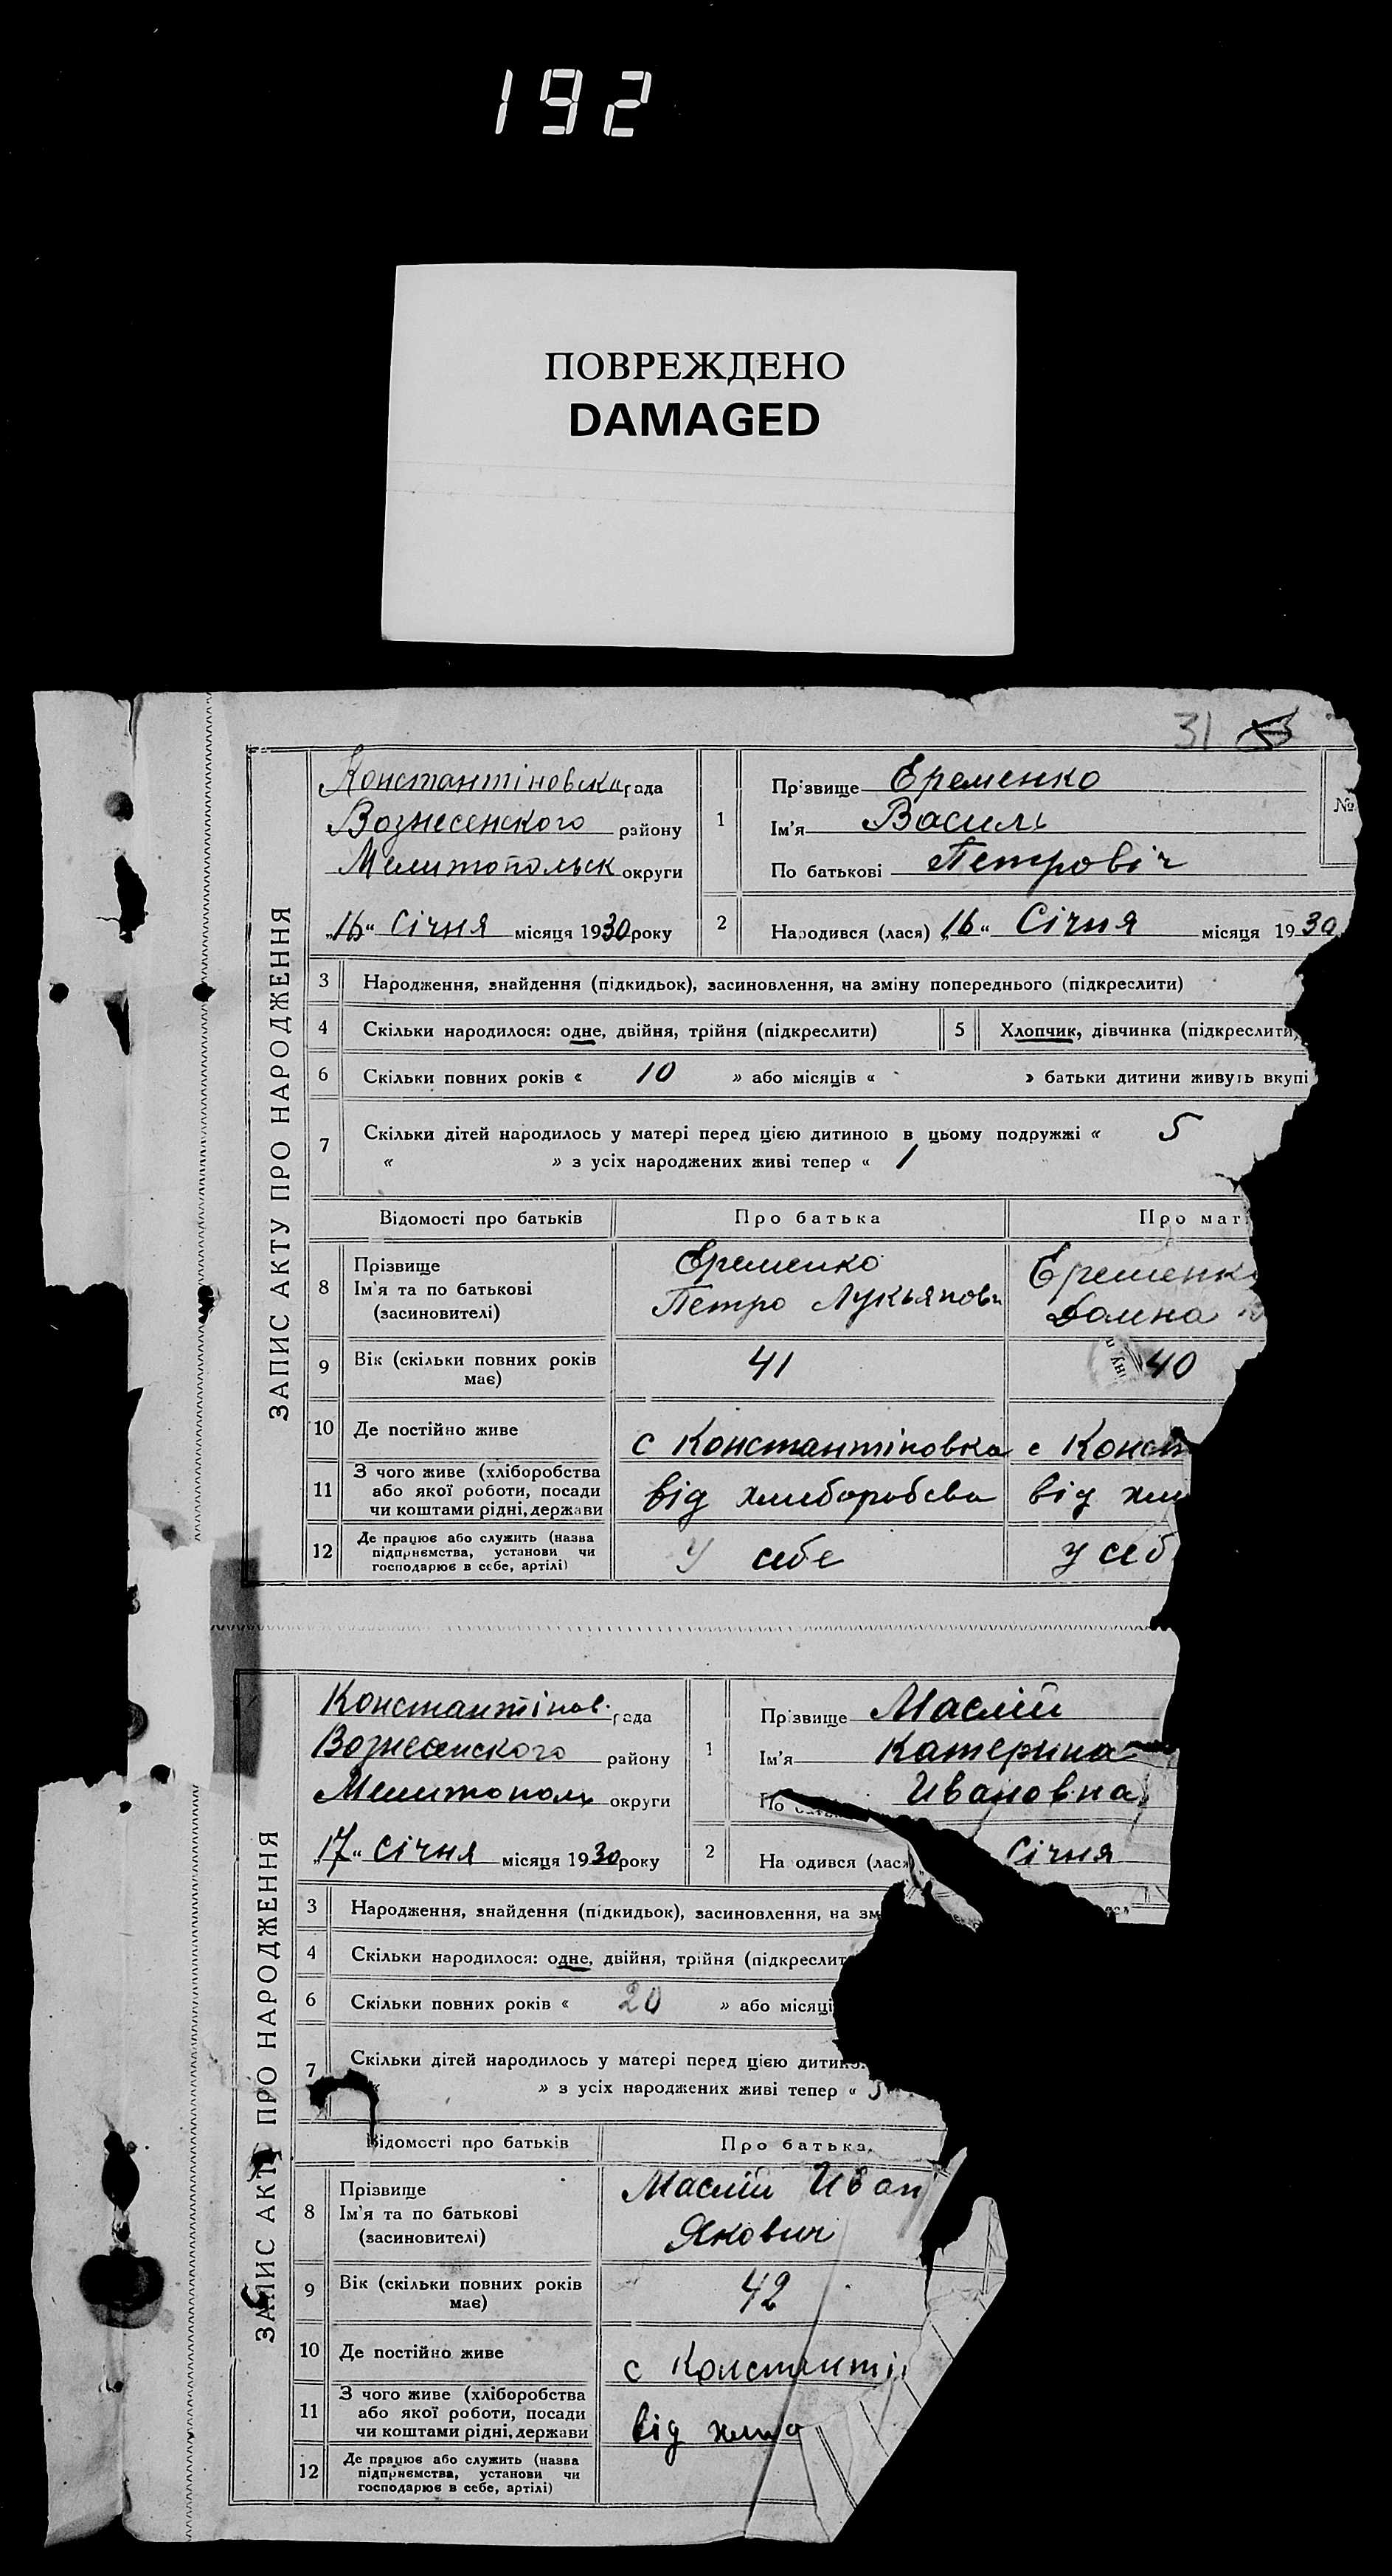 192
ПОВРЕЖДЕНО
DAMAGED
31
ЗАПИС АКТУ ПРО НАРОДЖЕННЯ
Константіновска рада
Вознесенского району
Мелитопольск округи
„16“ Січня місяця 1930 року
1 Прізвище Еременко
Ім'я Василь
По батькові Петровіч
№
2 Народився (лася) „16“ Січня місяця 1930
3 Народження, знайдення (підкидьок), засиновлення, на зміну попереднього (підкреслити)
4 Скільки народилося: одне, двійня, трійня (підкреслити) 5 Хлопчик, дівчинка (підкреслити)
6 Скільки повних років « 10 » або місяців « » батьки дитини живуть вкупі
7 Скільки дітей народилось у матері перед цією дитиною в цьому подружжі « 5
« » з усіх народжених живі тепер « 1
Відомості про батьків Про батька Про маті
8 Прізвище Ім'я та по батькові (засновителі) Еременко Петро Лукьянови Еременко Домна
9 Вік (скільки повних років має) 41 40
10 Де постійно живе с Константіновка с Конст
11 З чого живе (хліборобства або якої роботи, посади чи коштами рідні, держави від хлиборобсва від хли
12 Де працює або служить (назва підприємства, установи чи господарює в себе, артілі) У себе у себ
ЗАПИС АКТУ ПРО НАРОДЖЕННЯ
Константінов. рада
Вознесенского району
Мелитополь округи
„17“ Січня місяця 1930 року
1 Прізвище Маслій
Ім'я Катерина
По Ивановна
2 На одився (лася) Січня
3 Народження, знайдення (підкидьок), засиновлення, на зм
4 Скільки народилося: одне, двійня, трійня (підкреслит
6 Скільки повних років « 20 » або місяці
7 Скільки дітей народилось у матері перед цією дитино
» з усіх народжених живі тепер «
Відомості про батьків Про батька
8 Прізвище Ім'я та по батькові (засиновителі) Маслій Иван Якович
9 Вік (скільки повних років має) 42
10 Де постійно живе с Константі
11 З чого живе (хліборобства або якої роботи, посади чи коштами рідні, держави від хлиб
12 Де працює або служить (назва підприємства, установи чи господарює в себе, артілі)